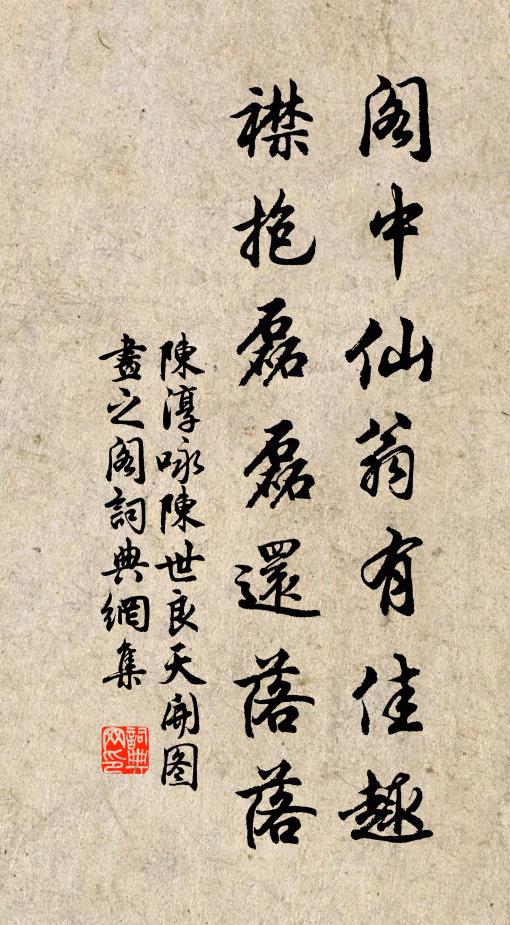 閣中仙翁有佳趣
襟抱磊磊還落落
陳淳咏陳世良天開图
畫之閣詞典網集
詞典
网印